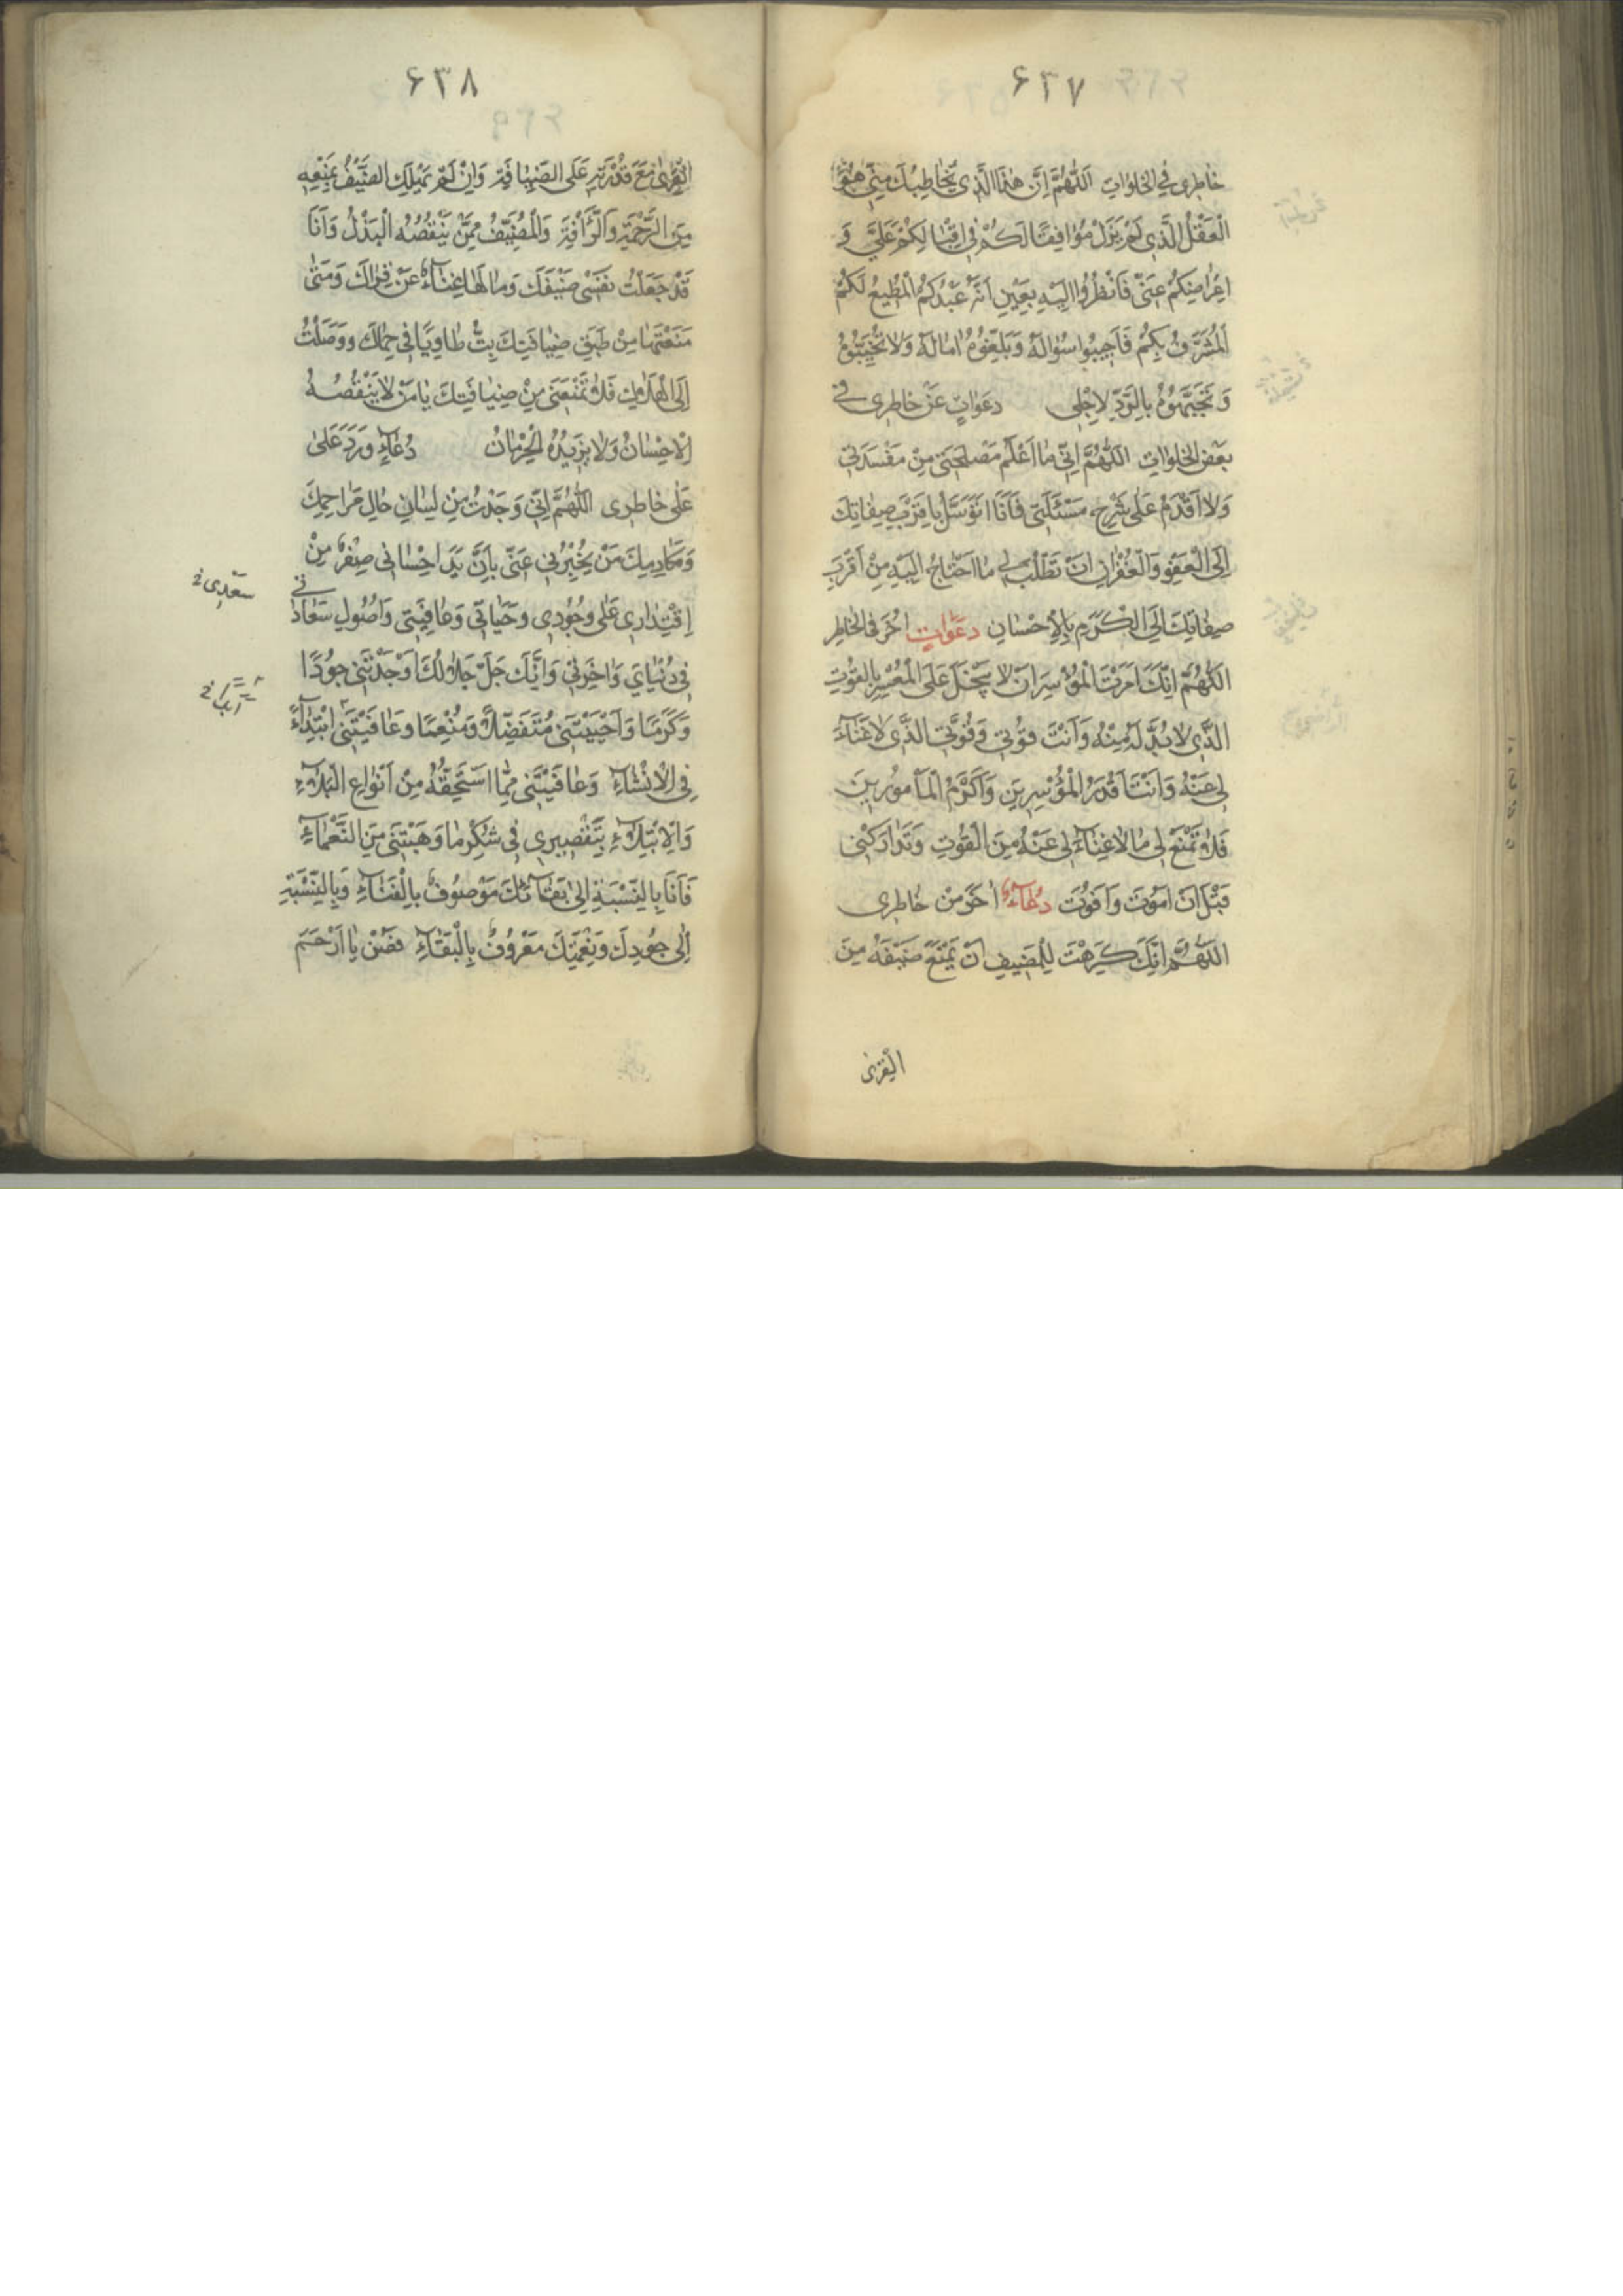 ۶۳۷
خاطرى فِي الخَلَواتِ اَللّٰهُمَّ اِنَّ هٰذَا الَّذى يُخاطِبُكَ مِنّى هُوَ
الْعَقْلُ الَّذى لَمْ يَزَلْ مُوافِقًا لَكُمْ فى اِقْبالِكُمْ عَلَىَّ وَ
اِعْراضِكُمْ عَنّى فَانْظُرُوا اِلَيْهِ بِعَيْنِ اَنَّهُ عَبْدُكُمُ الْمُطيعُ لَكُمْ
الْمُشَرَّفُ بِكُمْ فَاَجيبُوا سُؤالَهُ وَبَلِّغُوهُ امالَهُ وَلا تُخَيِّبُوهُ
وَ تَجْبَهُوهُ بِالرَّدِّ لِاَجْلى دَعَواتٍ عَنْ خاطِرى فى
بَعْضِ الخَلَواتِ اَللّٰهُمَّ اِنّى ما اَعْلَمُ مَصْلَحَتى مِنْ مَفْسَدَتى
وَلا اَقْدَمُ عَلى شَرْحِ مَسْئَلَتى فَاَنَا اَتَوَسَّلُ بِاَقْرَبِ صِفاتِكَ
اِلَى الْعَفْوِ وَالْغُفْرانِ اَنْ تَطْلُبَ لى ما اَحْتاجُ اِلَيْهِ مِنْ اَقْرَبِ
صِفاتِكَ اِلَى الْكَرَمِ بِالْاِحْسانِ دَعَواتٍ اُخَرَ فِى الخاطِرِ
اَللّٰهُمَّ اِنَّكَ اَمَرْتَ الْمُؤْسِرَ اَنْ لا يَبْخَلَ عَلَى الْمُعْسِرِ بِالْقُوتِ
الَّذى لا بُدَّ لَهُ مِنْهُ وَاَنْتَ قُوتى وَقُوَّتِى الَّذى لا غَنآءَ
لى عَنْهُ وَاَنْتَ اَقْدَرُ الْمُؤْسِرينَ وَاَكْرَمُ الْمَأْمُورينَ
فَلا تَمْنَعْ لى ما لا غِنآءَ لى عَنْهُ مِنَ الْقُوتِ وَتَدارَكْنى
قَبْلَ اَنْ اَمُوتَ وَاَفُوتَ دُعآءٌ اٰخَرُ مِنْ خاطِرى
اَللّٰهُمَّ اِنَّكَ كَرِهْتَ لِلْمُضيفِ اَنْ يَمْنَعَ ضَيْفَهُ مِنَ
الْقِرٰى
۶۳۸
الْقِرٰى مَعَ قُدْرَتِهِ عَلَى الضِّيافَةِ وَاِنْ لَمْ يَمْلِكِ الضَّيْفُ بِمَنْعِهِ
مِنَ الرَّحْمَةِ وَالرَّأْفَةِ وَالْمُضَيِّفُ مِمَّنْ يَنْقُصُهُ الْبَذْلُ وَاَنَا
قَدْ جَعَلْتُ نَفْسى ضَيْفَكَ وَما لَها غِنآءٌ عَنْ قِراكَ وَمَتٰى
مَنَعْتَها مِنْ طَبَقِ ضِيافَتِكَ بِتُّ طاوِيًا فى حِماكَ وَوَصَلْتُ
اِلَى الْهَلاكِ فَلا تَمْنَعَنى مِنْ ضِيافَتِكَ يا مَنْ لا يَنْقُصُهُ
الْاِحْسانُ وَلا يَزيدُهُ الْحِرْمانُ دُعآءٌ وَرَدَ عَلىٰ
عَلى خاطِرى اَللّٰهُمَّ اِنّى وَجَدْتُ مِنْ لِسانِ حالِ مَراحِمِكَ
وَمَكارِمِكَ مَنْ يُخْبِرُنى عَنّى بِاَنَّ يَدَ اِحْسانى صِفْرٌ مِنْ
اِقْتِدارى عَلى وُجُودى وَحَياتى وَعافِيَتى وَاُصُولِ سَعادَتى
فى دُنْياىَ وَاٰخِرَتى وَاَنَّكَ جَلَّ جَلالُكَ اَوْجَدْتَنى جُودًا
وَكَرَمًا وَاَحْيَيْتَنى مُتَفَضِّلًا وَمُنْعِمًا وَعافَيْتَنى ابْتِدآءً
فِى الْاِنْشآءِ وَعافَيْتَنى مِمّا اَسْتَحِقُّهُ مِنْ اَنْواعِ الْبَلآءِ
وَالْاِبْتِلآءِ بِتَقْصيرى فى شُكْرِ ما وَهَبْتَنى مِنَ النَّعْمآءِ
فَاَنَا بِالنِّسْبَةِ اِلى بَقآئِكَ مَوْصُوفٌ بِالْفَنآءِ وَبِالنِّسْبَةِ
اِلى جُودِكَ وَنِعْمَتِكَ مَعْرُوفٌ بِالْبَقآءِ فَصُنْ يا اَرْحَمَ